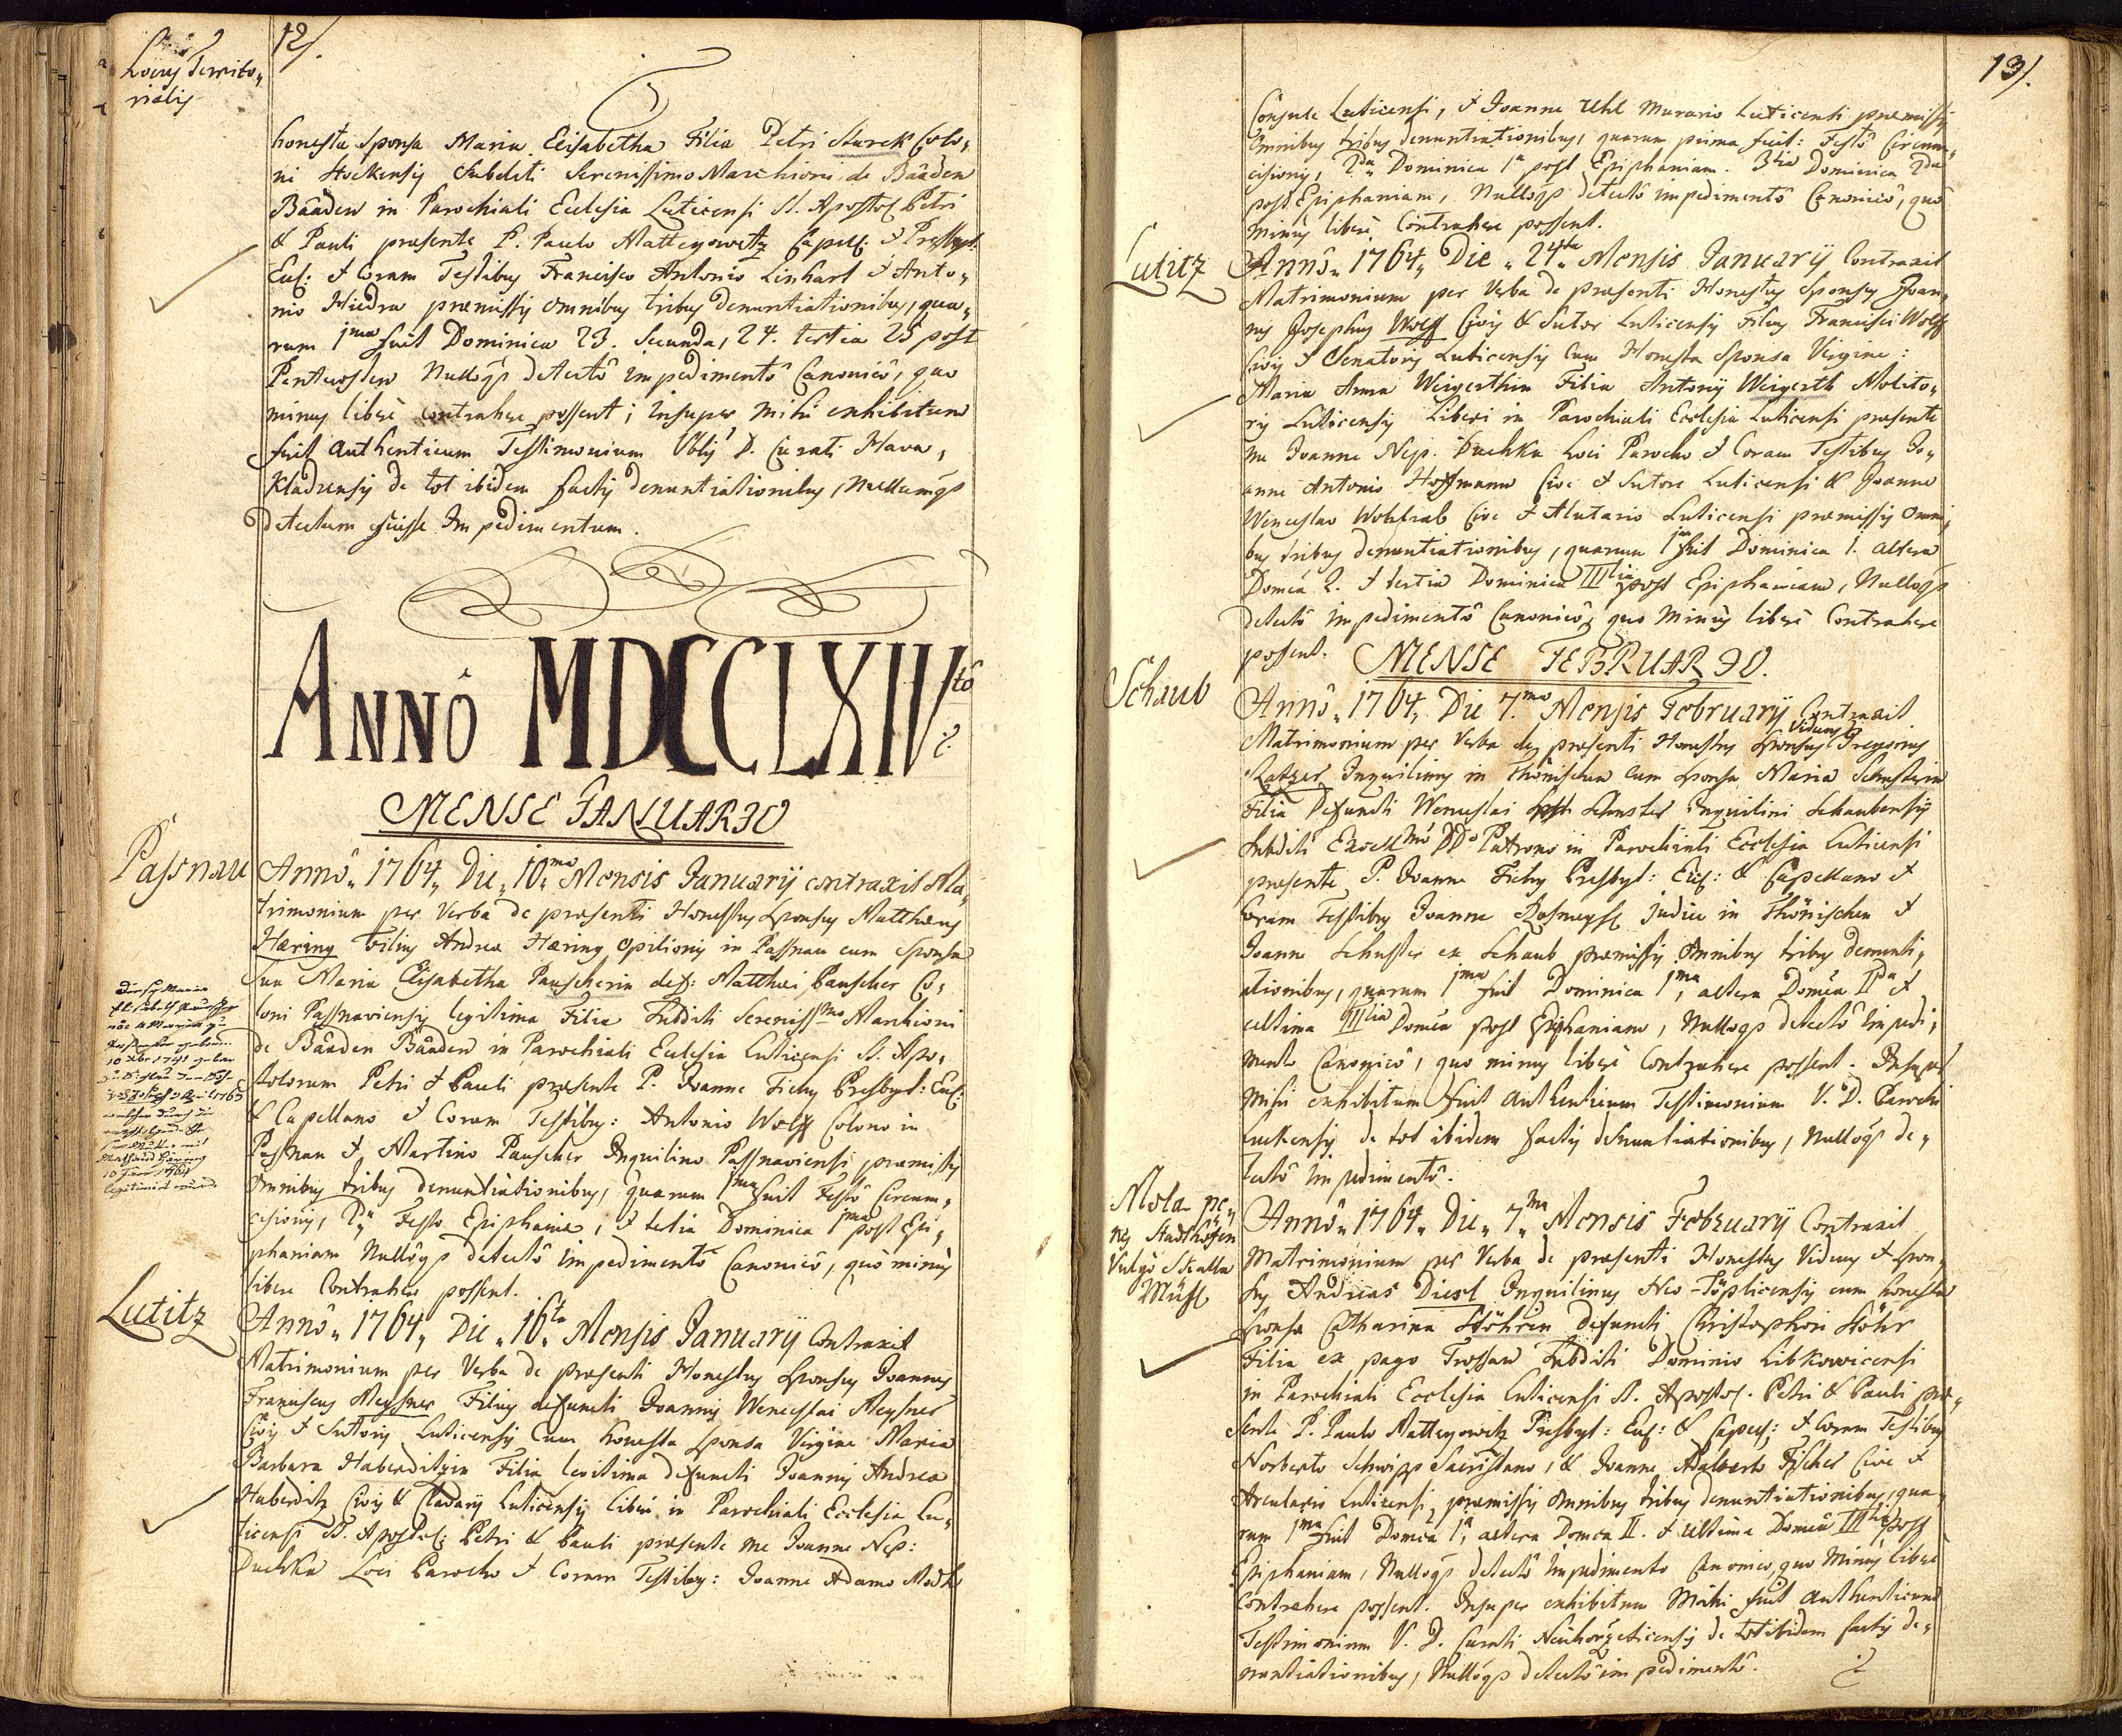 12/.
Locus Territo„
rialis
honesta Sponsa Maria Elisabetha Filia Petri Starck Colo„
ni Stockensis Subditi Serenissimo Marchioni de Baaden
Baaden in Parochiali Ecclesia Luticensi SS. Apostol: Petri
& Pauli praesente P. Paulo Matteyowetz Capell: & Presbyt:
Eccl: & Coram Testibus Francisco Antonio Linhart & Anto„
nio Hiedra praemissis omnibus tribus denuntiationibus, qua„
rum 1ma fuit Dominica 23. Secunda, 24. tertia 25 post
Pentecosten Nullôqs detectô impedimentô Canonicô, quo
minus liberè contrahere possent; insuper mihi exhibitum
fuit authenticum Testimonium D. Curati Hava„
Kladrensis de tot ibidem factis denuntiationibus, Nullumqs
detectum fuisse Impedimentum.
ANNÔ MDCCLXIVtô
MENSE JANUARIO
Passnau
Annô„ 1764„ Die„ 10ma Mensis January contraxit Ma„
trimonium per Verba de praesenti Honestus Sponsus Matthaeus
Hæring Filius Andrea Hæring opilionis in Passnau cum Sponsa
sua Maria Elisabetha Pauscherin def: Matthaei Pauscher Co„
loni Passnaviensis legitima Filia Subditi Sereniss:mo Marchioni
de Baaden Baaden in Parochiali Ecclesia Luticensi SS. Apo„
stolorum Petri & Pauli praesente P. Joanne Fichy Presbyt: Eccl:
& Capellano & Coram Testibus: Antonio Wolff Colono in
Passnau & Martino Pauscher Inquilino Passnaviensi praemissis
Omnibus tribus denuntiationibus, quarum 1ma fuit Festô Circum„
cisionis, 2da Festo Epiphaniae, & tertia Dominica 1ma post Epi„
phaniam Nullôqs detectô impedimentô Canonicô, quô minus
libere Contrahere possent.
10 Xbr 1741
1763
10 1764
legitimirt
Lutitz
Annô„ 1764„ Die„ 16ta Mensis January Contraxit
Matrimonium per Verba de praesenti Honestus Sponsus Joannes
Franciscus Meysner Filius defuncti Joannis Wenceslai Meysner
Civis & Sutoris Luticensis Cum honesta Sponsa Virgine Maria
Barbara Haberditzin Filia legitima defuncti Joannis Andrea
Haberditz Civis & Luticensis liberi in Parochiali Ecclesia Lu„
ticensi SS. Apostol: Petri & Pauli praesente me Joanne Nep:
Duchka Loci Parocho & Coram Testibus: Joanne Adamo
13/.
Consule Luticensi, & Joanne Uhl Murario Luticensi praemissis
Omnibus tribus denuntiationibus, quarum prima fuit: Festô Circum„
cisionis, 2da Dominica 1a post Epiphaniam. 3tia Dominica 2da
post Epiphaniam, Nullôqs detectô impedimentô Canonicô, quô
minus liberè Contrahere possent.
Lutitz
Annô„ 1764„ Die„ 24ta Mensis January Contraxit
Matrimonium per Verba de praesenti Honestus Sponsus Joan„
nes Josephus Wolff Civis & Sutor Luticensis Filius Francisci Wolff
Civis & Senatoris Luticensis Cum Honesta Sponsa Virgine:
Maria Anna Weigerthin Filia Antonij Weigerth Molito„
ris Luticensis Liberi in Parochiali Ecclesia Luticensi praesente
me Joanne Nep. Duchka Loci Parocho & Coram Testibus Jo„
anne Antonio Hoffmann Cive & Sutore Luticensi & Joanne
Wenceslao Wohlrab Cive & Alutario Luticensi praemissis Omni„
bus tribus denuntiationibus, quarum 1ma fuit Dominica 1. altera
Domca 2. & tertia Dominica IIItia post Epiphaniam, Nullôqs
detectô impedimentô Canonicô, quo minus liberè Contrahere
possent.
MENSE FEBRUARIO.
Schaub
Annô„ 1764„ Die 7ma Mensis February Contraxit
Matrimonium per Verba de praesenti Honestus Sponsus Viduus Gregorius
Ratzer Inquilinus in Thönischen cum Sponsa Maria Schusterin
Filia Defuncti Wenceslai Schuster Inquilini Schaubensis
Subditi Excell:mo DDo Patrono in Parochiali Ecclesia Luticensi
praesente P. Joanne Fichy Presbyt: Eccl: & Capellano &
Coram Testibus Joanne Judice in Thönischen &
Joanne Schuster ex Schaub praemissis Omnibus tribus denunti„
ationibus, quarum 1ma fuit Dominica 1ma, altera Domca IIda &
ultima IIItia Domca post Epiphaniam, Nullôqs detectô impedi„
mento Canonicô, quo minus liberè Contrahere possent. Insuper
mihi exhibitum fuit authenticum Testimonium V. D. Parochi
Luckensis de tot ibidem factis denuntiationibus, Nullôqs de„
tectô impedimentô.
Mola pe„
nes Stadthöfen
vulgo Stalla
Mühl
Annô„ 1764„ Die„ 7ma Mensis February Contraxit
Matrimonium per Verba de praesenti Honestus Viduus & Spon„
sus Andreas Diesl Inquilinus Neo-Töplicensis cum honesta
Sponsa Catharina Stöhrin defuncti Christophori Stöhr
Filia ex pago Trossau Subditi Dominio Libkowicensi
in Parochiali Ecclesia Luticensi SS. Apostol. Petri & Pauli prae„
sente P. Paulo Matteyowetz Presbyt: Eccl: & Capell: & Coram Testibus
Norberto Schwipp Sacristano, & Joanne Adalberto Fischer Cive &
Arculario Luticensi, praemissis omnibus tribus denuntiationibus, qua„
rum 1ma fuit Domca 1a, altera Domca II. & ultima Domca IIItia post
Epiphaniam, Nullôqs detectô impedimento Canonico, quo minus liberè
contrahere possent. Insuper exhibitum Mihi fuit authenticum
Testimonium V. D. Curati de tot ibidem factis de„
nuntiationibus, Nullôqs detectô impedimentô.